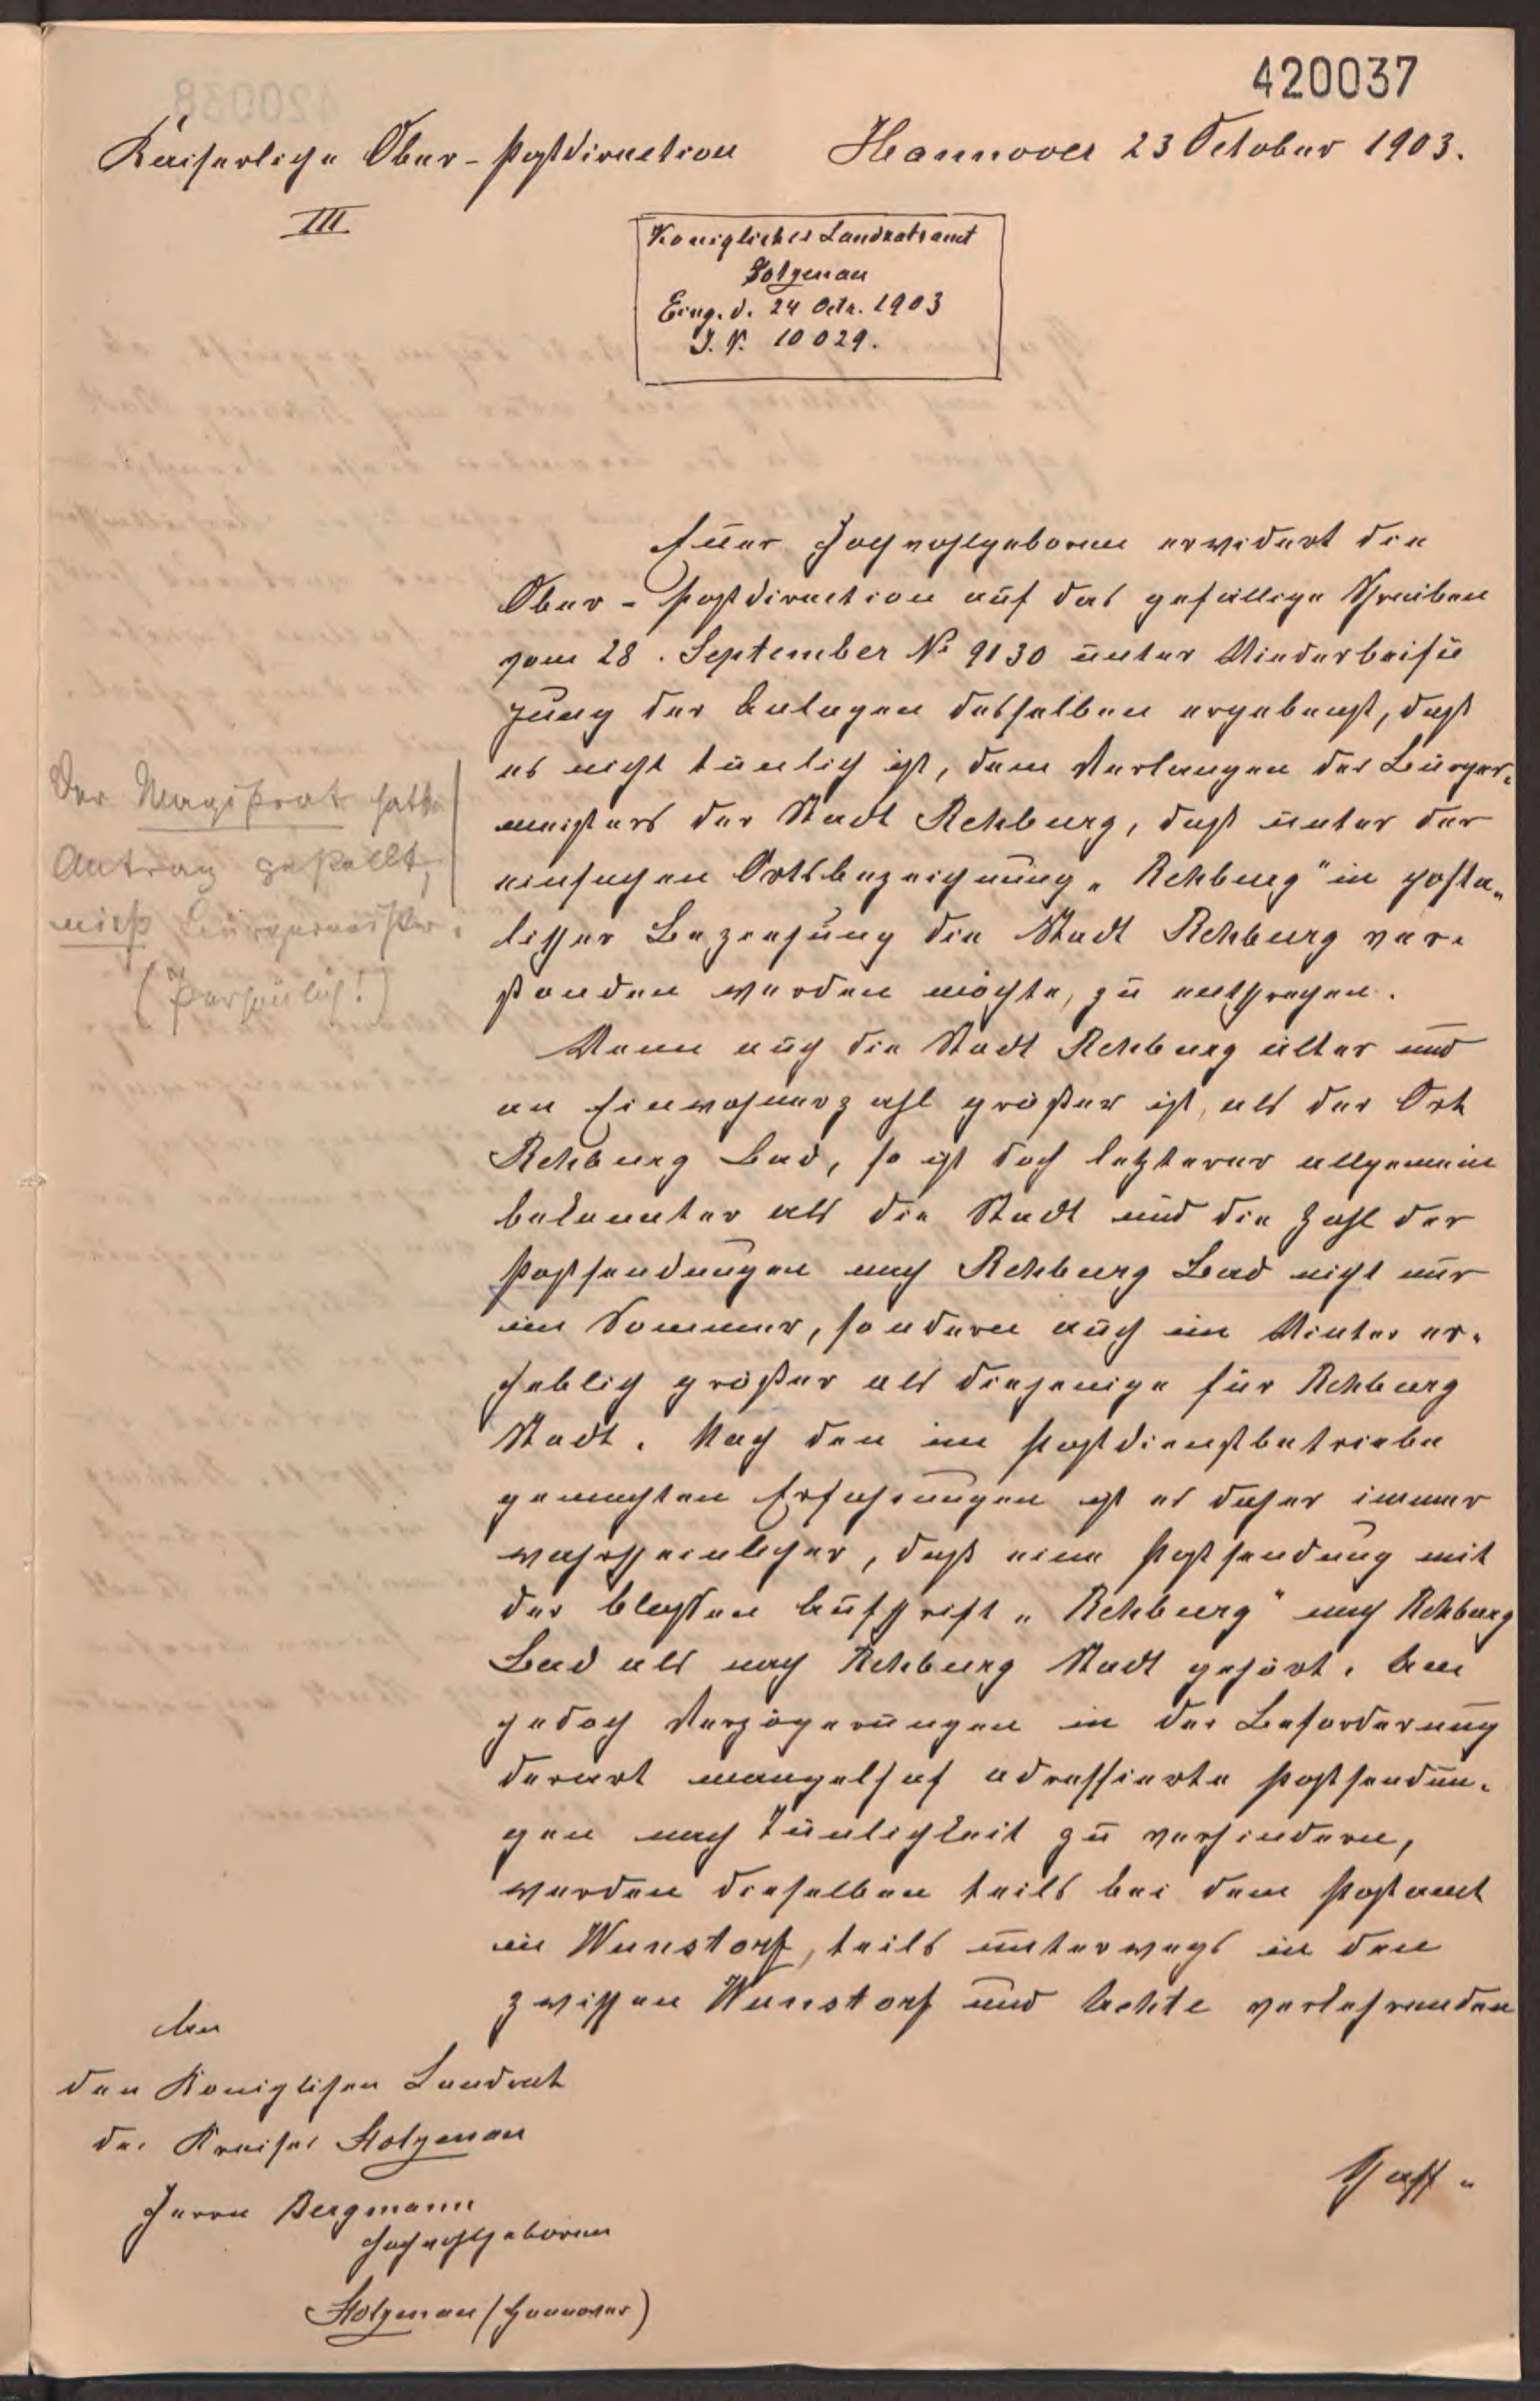 420037
Kaiserliche Ober-Postdirection
Hannover 23 October 1903.
III
Königliches Landratsamt
Stolzenau
Eing. d. 24 Octr. 1903
J. N. 10029.
Euer Hochwohlgeboren erwidert die
Ober-Postdirection auf das gefällige Schreiben
vom 28. September No 9130 unter Wiederbeifü
gung der Anlagen desselben ergebenst, daß
es nicht tunlich ist, dem Verlangen des Bürger-
meisters der Stadt Rehburg, daß unter der
einfachen Ortsbezeichnung „Rehburg" in posta-
lischer Beziehung die Stadt Rehburg ver-
standen werden möchte, zu entsprechen.
Wenn auch die Stadt Rehburg älter und
an Einwohnerzahl größer ist, als der Ort
Rehburg Bad, so ist doch letzterer allgemein
bekannter als die Stadt und die Zahl der
Postsendungen nach Rehburg Bad nicht nur
im Sommer, sondern auch im Winter er-
heblich größer als diejenige für Rehburg
Stadt. Nach den im Postdienstbetriebe
gemachten Erfahrungen ist es daher immer
wahrscheinlicher, daß eine Postsendung mit
der bloßen Aufschrift „Rehburg" nach Rehburg
Bad als nach Rehburg Stadt gehört. Um
jedoch Verzögerungen in der Beförderung
derart mangelhaf adressierte Postsendun-
gen nach Tunlichkeit zu verhindern,
werden dieselben teils bei dem Postamt
in Wunstorf, teils unterwegs in den
zwischen Wunstorf und Uchte verkehrenden
Der Magistrat hatte
Antrag gestellt,
nicht Bürgermeister.
(Persönlich!)
An
den Königlichen Landrat
des Kreises Stolzenau
Herrn Bergmann
Hochwohlgeboren
Stolzenau (Hannover)